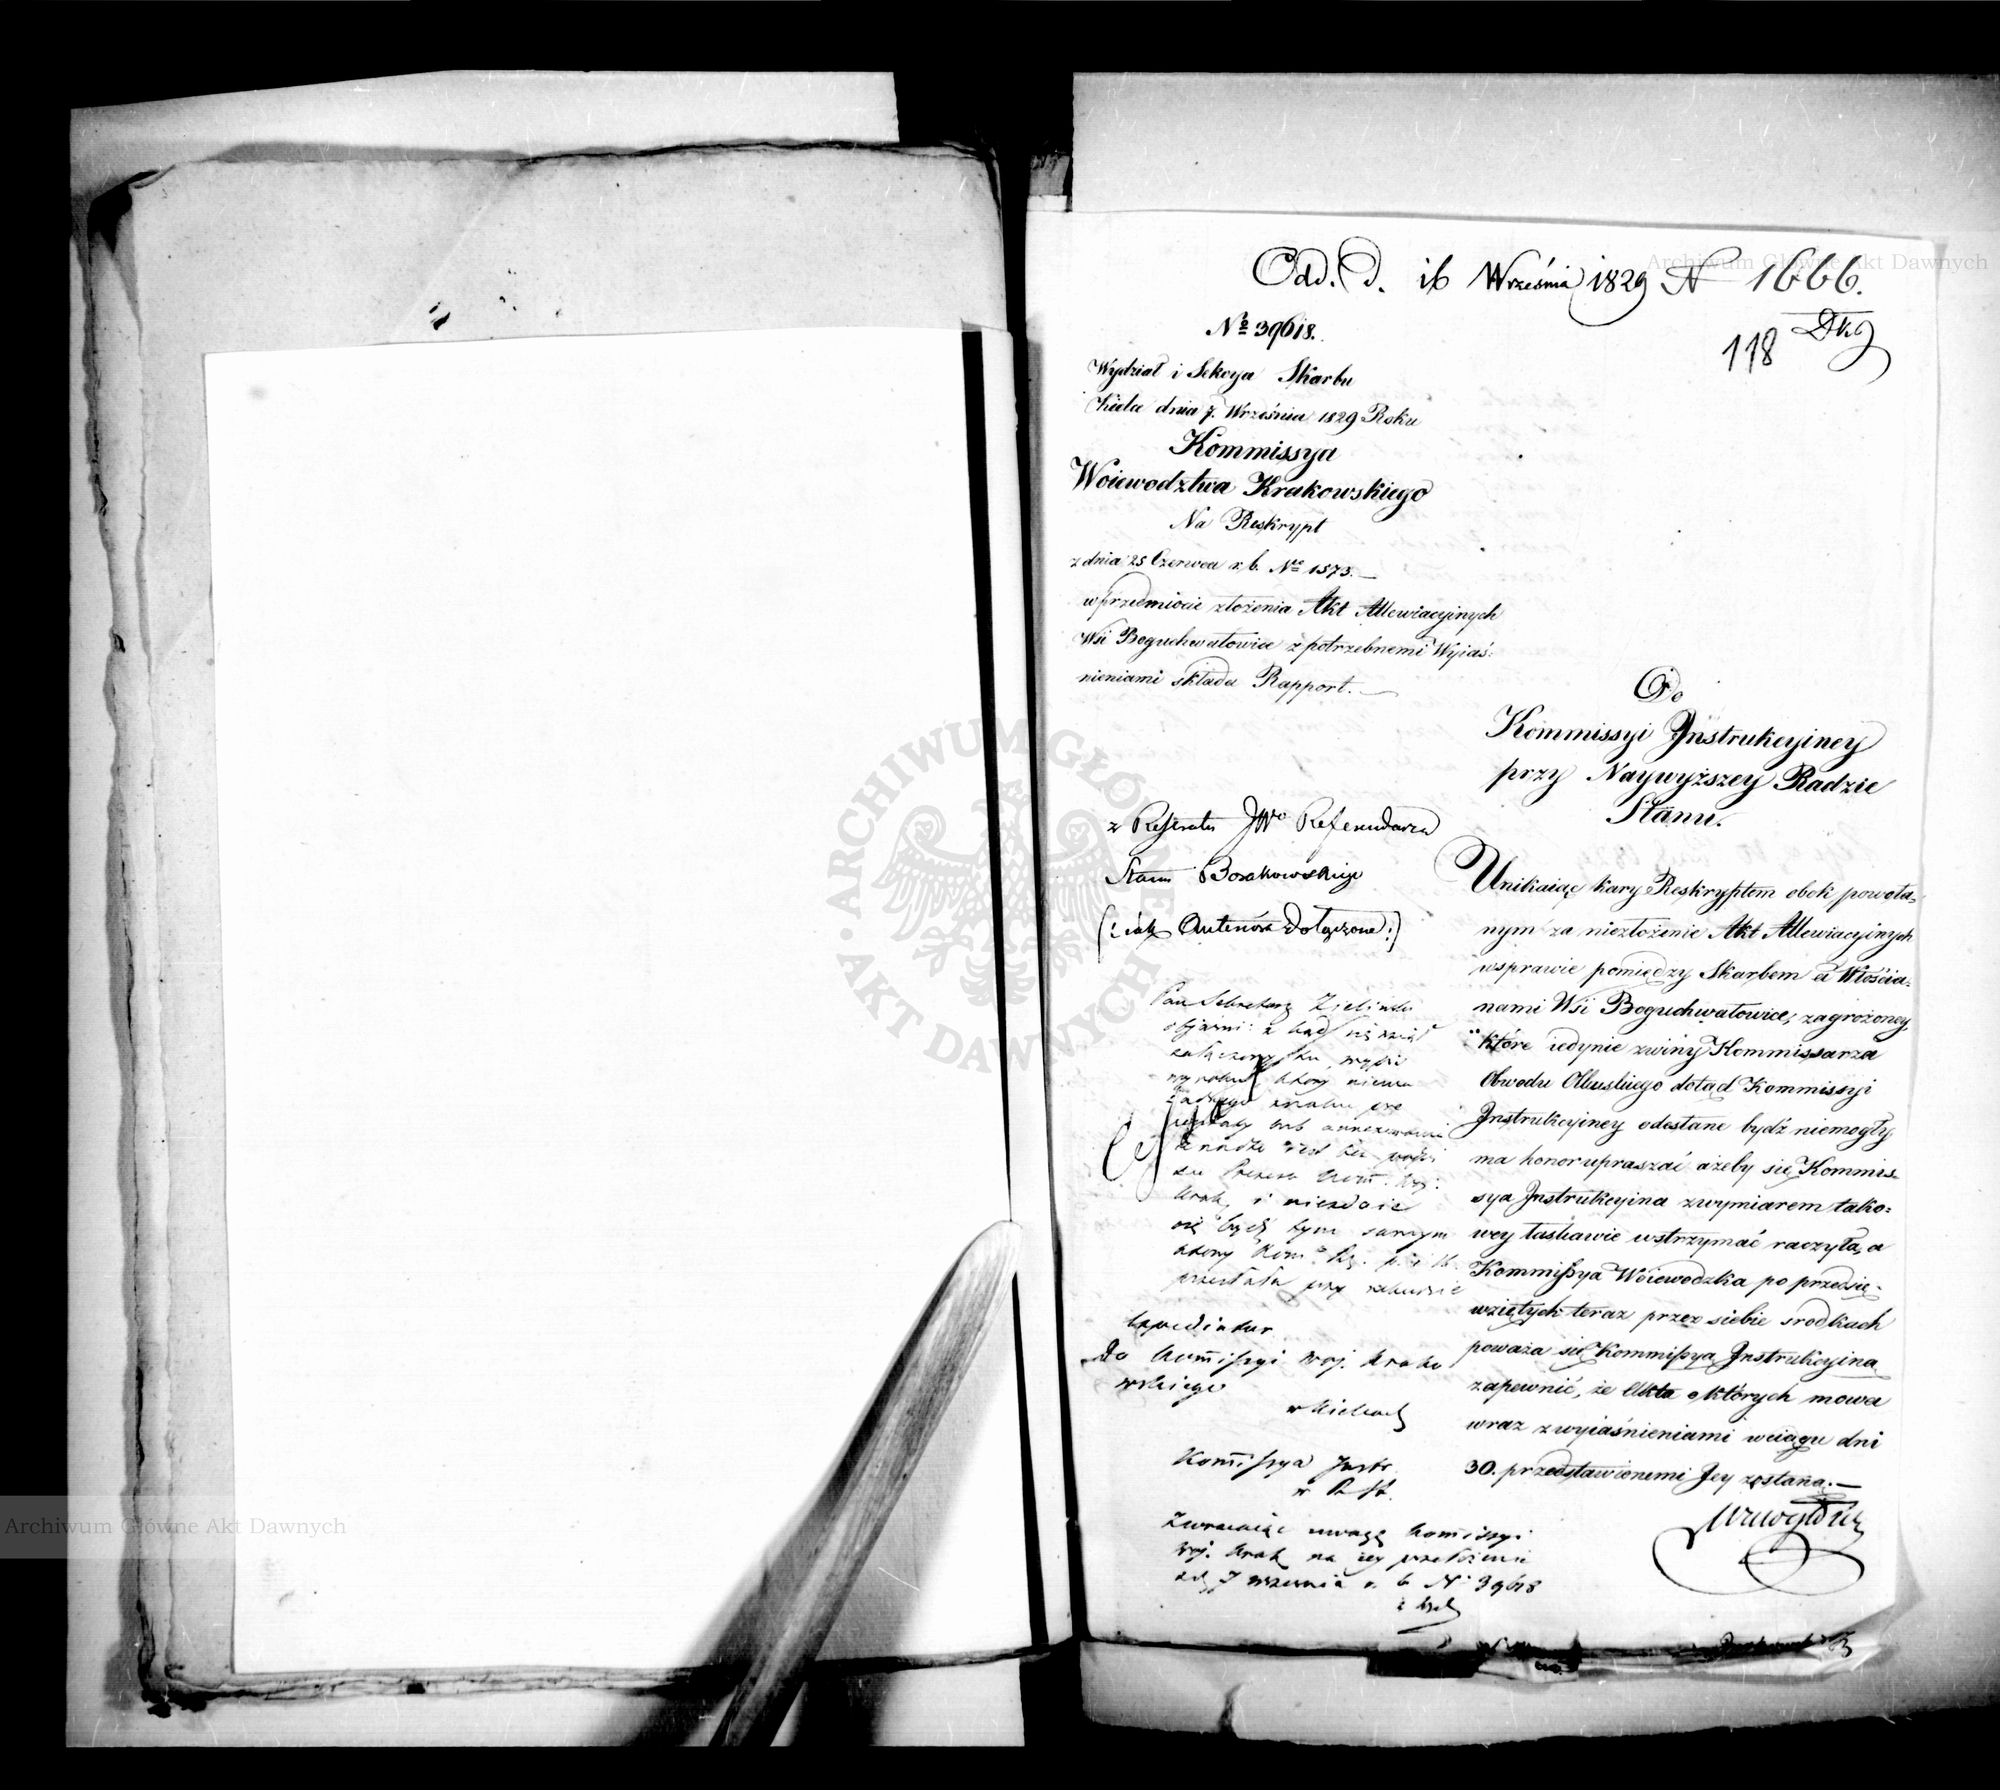 Odd. D. 16 Września 1829 N 1666.
Dkg
118
No 39618.
Wydział i Sekcya Skarbu
Kielce dnia 7. Września 1829 Roku
Kommissya
Woiewodztwa Krakowskiego
Na Reskrypt
z dnia 25 Czerwca r. b. Nro 1573. —
w przedmiocie złożenia Akt Allewiacyjnych
Wsi Boguchwałowice z potrzebnemi Wyiaś:
nieniami składa Rapport. —
Do
Kommissyi Instrukcyiney
przy Naywyższey Radzie
Stanu.
z Referatu JWo Referendarza
Stanu
(: Dołączone :)
Unikaiąc kary Reskryptem obok powoła-
nym za niezłożenie Akt Allewiacyinych
wsprawie pomiędzy Skarbem a Włościa-
nami Wsi Boguchwałowice, zagrożoney,
które iedynie zwiny Kommissarza
Obwodu Olkuskiego dotąd Kommissyi
Instrukcyiney odesłane bydź niemogły
ma honor upraszać ażeby się Kommis-
sya Instrukcyina zwymiarem tako:
wey łaskawie wstrzymać raczyła, a
Kommissya Woiewodzka po przedsię-
wziętych teraz przez siebie srodkach
poważa się Kommissyą Instrukcyiną
zapewnić, że Akta o których mowa
wraz z wyiaśnieniami wciągu dni
30. przedstawionemi Jey zostaną. —
Pan Sekretarz Zieliński
obiaśni z kąd się wziął
załączony tu wypis
wyroku który niema
żadnego znaku
i niezdaie
się być tym samym
który
Expedietur
Do Kommissyi Woj. Krako
wskiego
w Kielcach
Kommissya Instr.
Zwracaiąc uwagę Kommissyi
Woj. Krak na iey przełożenie
z d. 7 września r. b. No 39618
Archiwum Główne Akt Dawnych
ARCHIWUM GŁÓWNE AKT DAWNYCH
Archiwum Główne Akt Dawnych